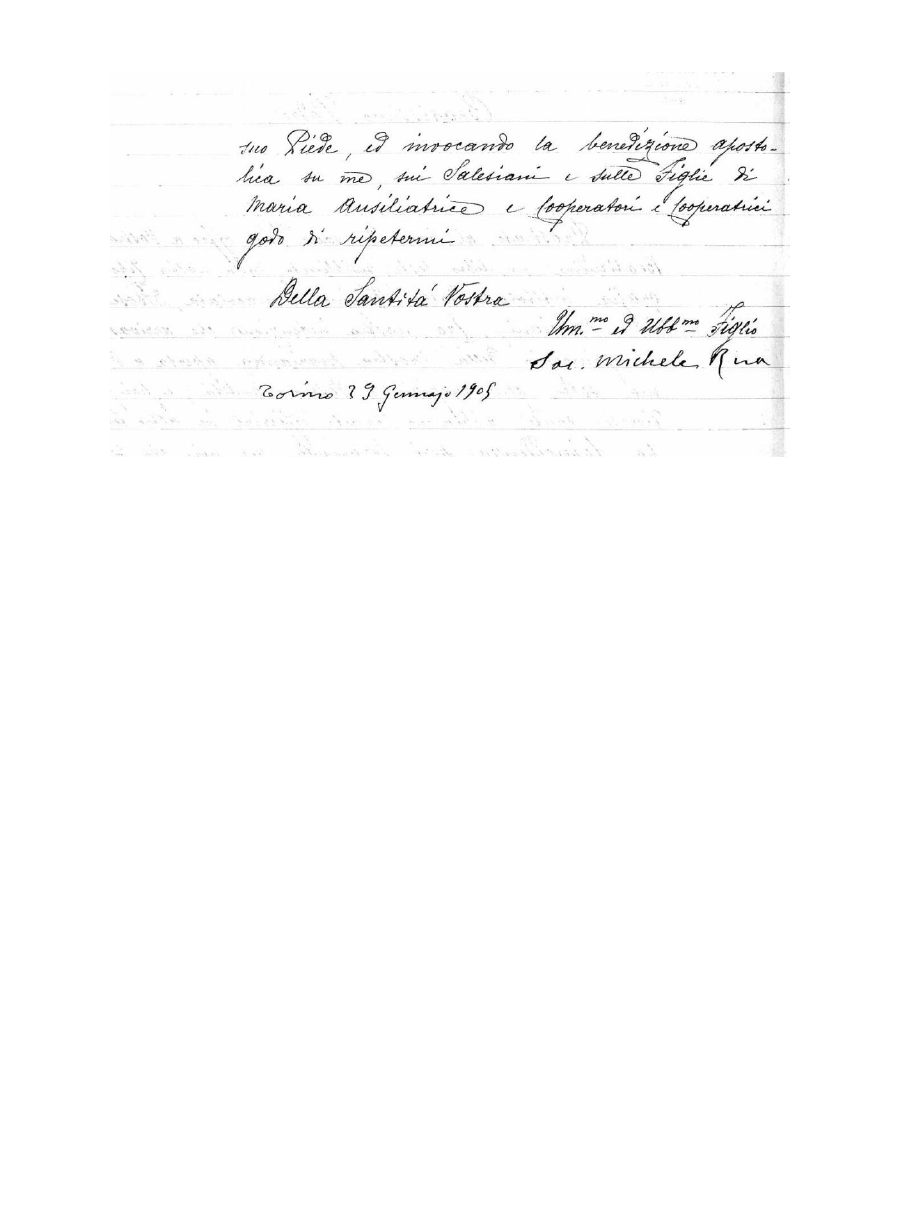 suo Piede, ed invocando la benedizione aposto-
lica su me, sui Salesiani e sulle Figlie di
Maria Ausiliatrice e Cooperatori e Cooperatrici
godo di ripetermi
Della Santitá Vostra
Um.mo ed Ubb.mo Figlio
Sac. Michele Rua
Torino 29 Gennajo 1905